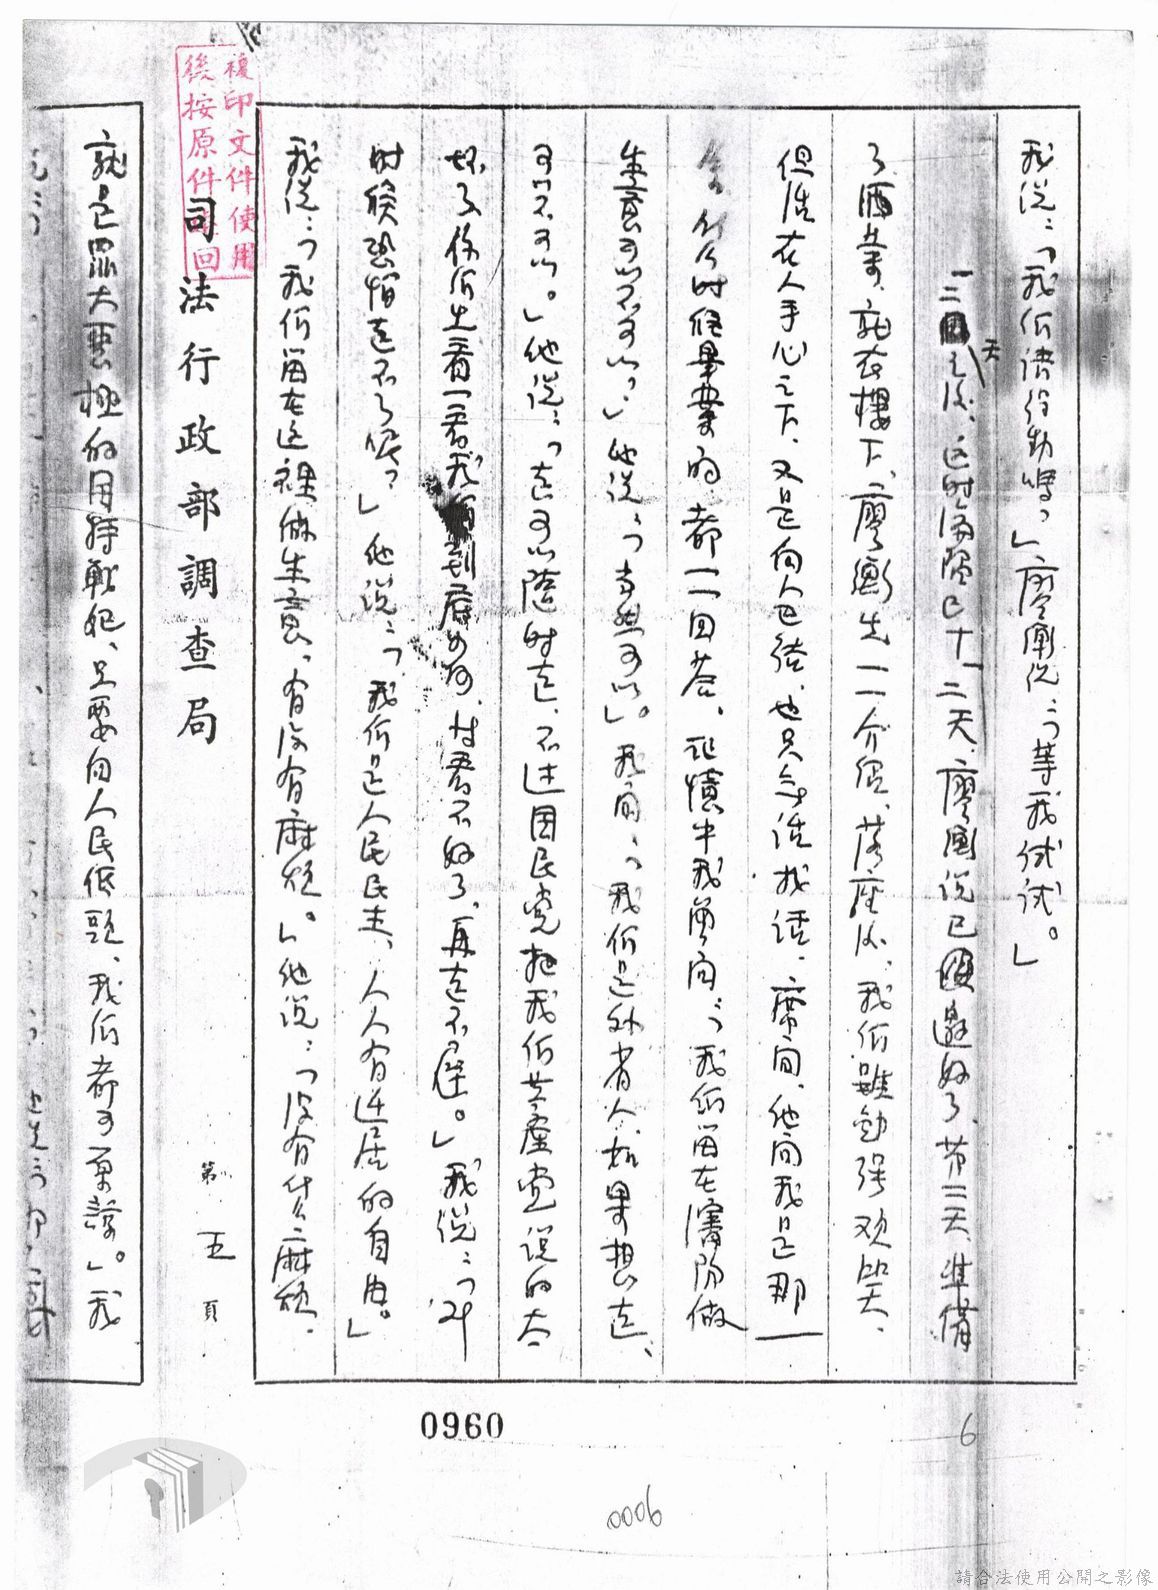 我說：「我們請得動嗎？」廖衡說：「等我試試。」
一二天之後、這時瀋陽已十一二天、廖衡說已邀好了、第二天、準備
了酒菜、就在樓下、廖衡先一一介紹、落座後、我們雖勉強欢笑、
但活在人手心之下、又是向人巴結、也只無話找話、席间、他问我是那一
什么时候畢業的、都一一回荅、記憶中我曾问：「我們留在瀋阳做
生意可以不可以？」他說：「当然可以」。我问：「我們是外省人、如果想走、
可以不可以。」他說：「走可以隨时走、不过国民党把我們共產党說的太
坏了、你們先看一看我們到底如何、发若不好了、再走不遲。」我說：「以
时候恐怕走不了呢？」他說：「我們是人民民主、人人有迁居的自由。」
我說：「我們留在这裡做生意、有沒有麻烦。」他說：「沒有什么麻烦、
複印文件使用
後按原件 回
司法行政部調查局
第 五 頁
就是罪大惡極的国特戰犯、只要向人民低頭、我們都可原諒。」我
0960
6
0006
請合法使用公開之影像